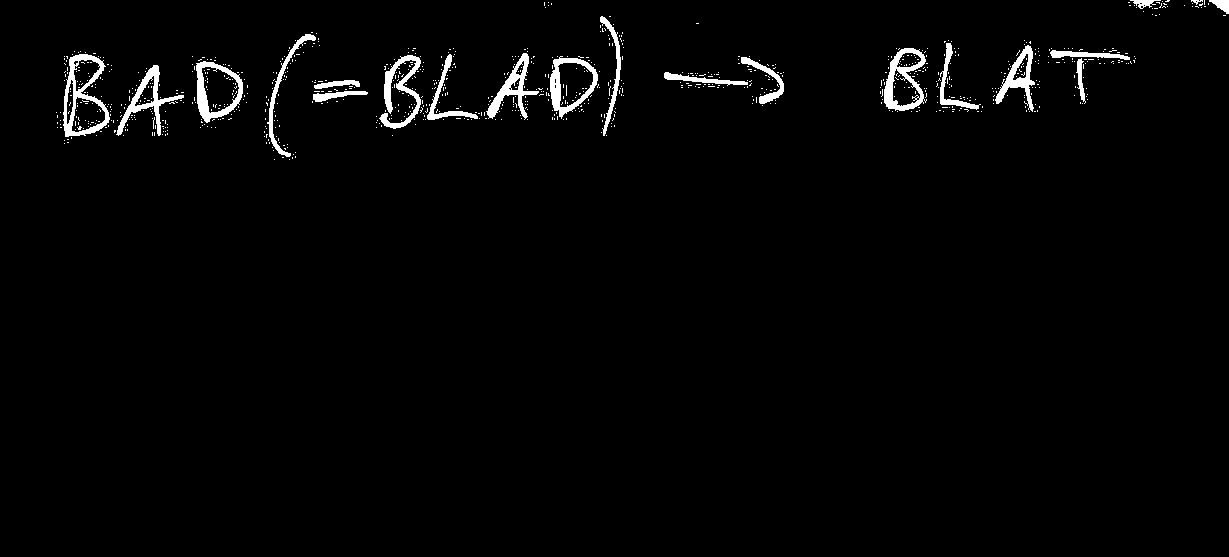 BAD (= BLAD) → BLAT